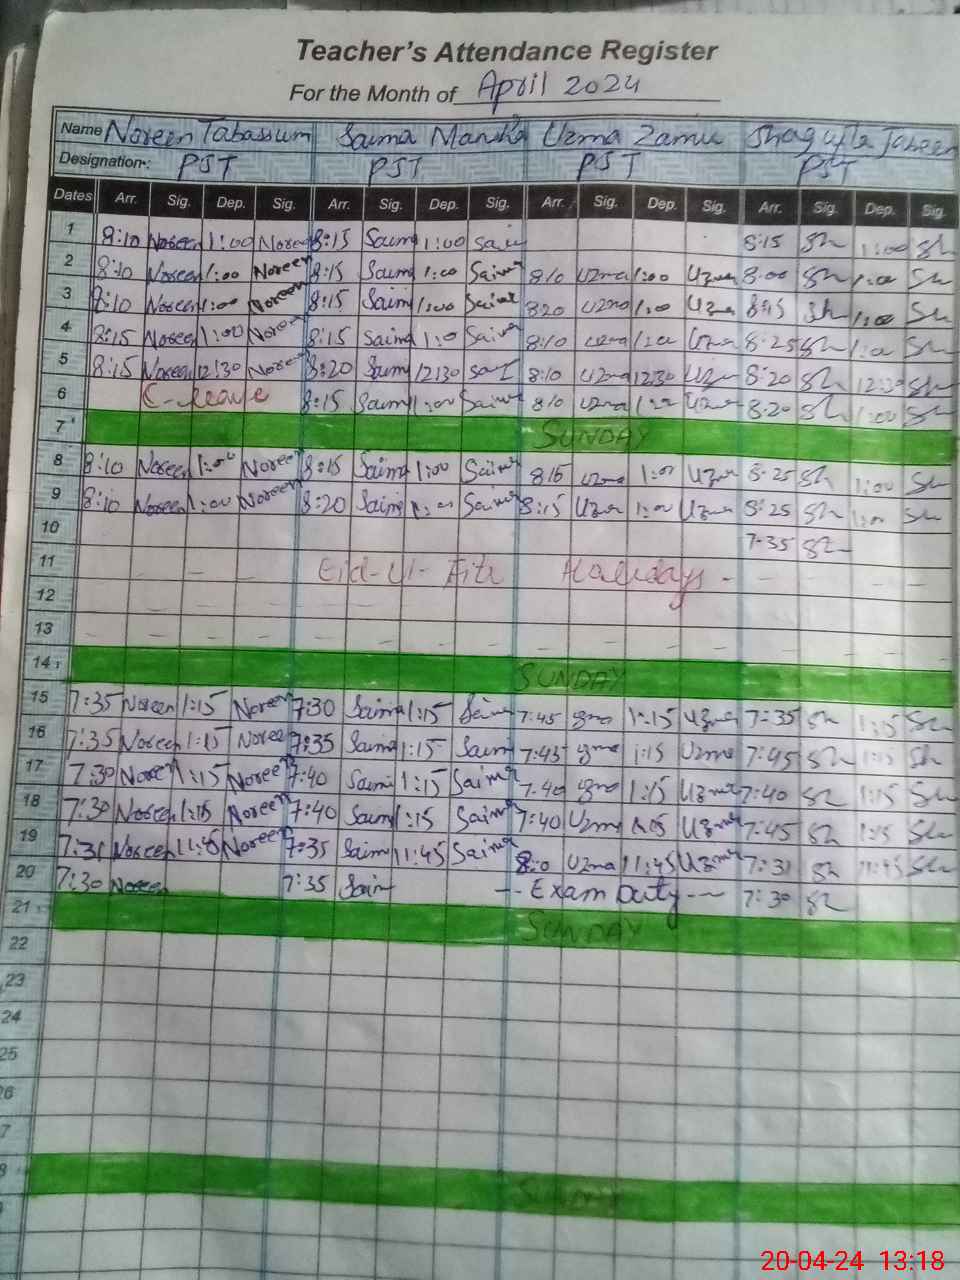 Teacher's Attendance Register
For the Month of April 2024
Name Noreen Tabassum Saima Uzma
Designation: PST PST PST PST
Dates Arr. Sig. Dep. Sig. Arr. Sig. Dep. Sig. Arr. Sig. Dep. Sig. Arr. Sig. Dep. Sig.
1 8:10 Noreen 1:00 Noreen 8:15 Saim 1:00 Sai 8:15 Sh 1:00 Sh
2 8:10 Noreen 1:00 Noreen 8:15 Saim 1:00 Saima 8:10 Uzma 1:00 Uzma 8:00 Sh 1:00 Sh
3 8:10 Noreen 1:00 Noreen 8:15 Saim 1:00 Saima 8:20 Uzma 1:00 Uzma Sh 1:00 Sh
4 8:15 Noreen 1:00 Noreen 8:15 Saim 1:0 Saima 8:10 Uzma 1:00 Uzma 8:25 Sh 1:00 Sh
5 8:15 Noreen 12:30 Noreen 8:20 Saim 12:30 8:10 Uzma 12:30 Uzma 8:20 Sh Sh
6 C-leave 8:15 Saim 1:00 Saima 8:10 Uzma Uzma 8:20 Sh 1:00 Sh
7 SUNDAY
8 8:10 Noreen 1:00 Noreen 8:15 Saima 1:00 Saima 8:15 Uzma 1:00 Uzma 8:25 Sh 1:00 Sh
9 8:10 Noreen 1:00 Noreen 8:20 Saim 1:00 Saima 8:15 Uzma 1:00 Uzma 8:25 Sh 1:00 Sh
10 7:35 Sh
11 - - - Eid-Ul-Fitr Holidays - - - -
12
13
14 SUNDAY
15 7:35 Noreen 1:15 Noreen 7:30 Saima 1:15 Saima 7:45 1:15 Uzma 7:35 Sh 1:15 Sh
16 7:35 Noreen 1:15 Noreen 7:35 Saima 1:15 Saim 7:45 1:15 Uzma 7:45 Sh 1:15 Sh
17 7:30 Noreen 1:15 Noreen 7:40 Saim 1:15 Saima 7:40 1:15 Uzma 7:40 Sh 1:15 Sh
18 7:30 Noreen 1:15 Noreen 7:40 Saim 1:15 Saima 7:40 Uzma Uzma 7:45 Sh 1:15 Sh
19 7:31 Noreen 11:45 Noreen 7:35 Saim 11:45 Saima 8:0 Uzma 11:45 Uzma 7:31 Sh 11:45 Sh
20 7:30 Noreen 7:35 Saim -- Exam Duty -- 7:30 Sh
21 SUNDAY
22
23
24
25
26
7
8 SUNDAY
20-04-24 13:18